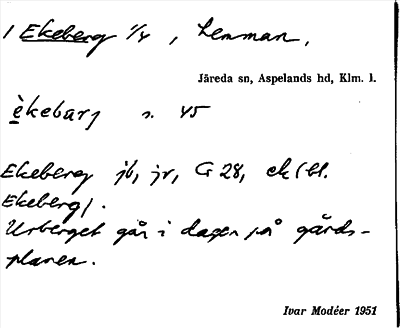 1 Ekeberg 1/4, hemman.
Järeda sn, Aspelands hd, Klm. l.
èkebarj s. 45
Ekeberg jb, jr, G 28, ek (bl.
Ekeberg).
Urberget går i dagen på gårds-
planen.
Ivar Modéer 1951